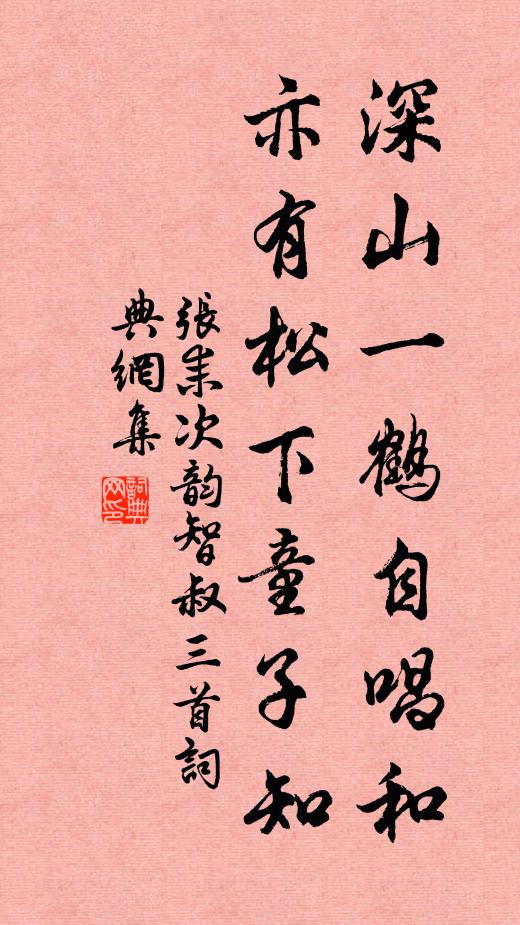 深山一鶴自唱和
亦有松下童子知
張耒次韵智叔三首詞
典網集
詞典網印